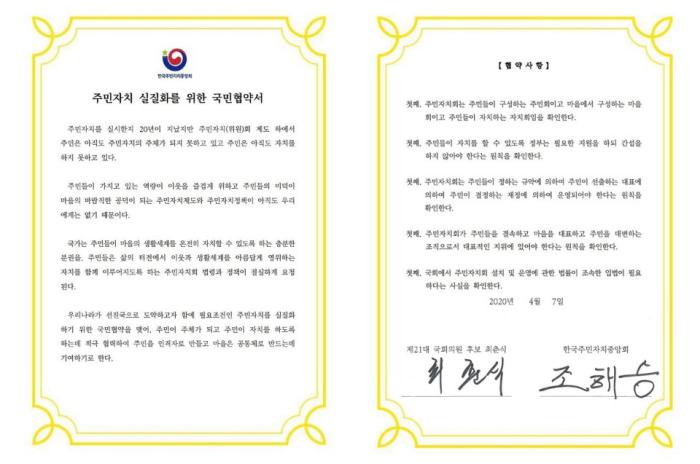 한국주민자치중앙회
주민자치 실질화를 위한 국민협약서
주민자치를 실시한지 20년이 지났지만 주민자치(위원)회 제도 하에서
주민은 아직도 주민자치의 주체가 되지 못하고 있고 주민은 아직도 자치를
하지 못하고 있다.
주민들이 가지고 있는 역량이 이웃을 즐겁게 위하고 주민들의 미덕이
마을의 바람직한 공덕이 되는 주민자치제도와 주민자치정책이 아직도 우리
에게는 없기 때문이다.
국가는 주민들이 마을의 생활세계를 온전히 자치할 수 있도록 하는 충분한
분권을, 주민들은 삶의 터전에서 이웃과 생활세계를 아름답게 영위하는
자치를 함께 이루어지도록 하는 주민자치회 법령과 정책이 절실하게 요청
된다.
우리나라가 선진국으로 도약하고자 함에 필요조건인 주민자치를 실질화
하기 위한 국민협약을 맺어, 주민이 주체가 되고 주민이 자치를 하도록
하는데 적극 협력하여 주민을 인격자로 만들고 마을은 공동체로 만드는데
기여하기로 한다.
[협약사항]
첫째, 주민자치회는 주민들이 구성하는 주민회이고 마을에서 구성하는 마을
회이고 주민들이 자치하는 자치회임을 확인한다.
첫째, 주민들이 자치를 할 수 있도록 정부는 필요한 지원을 하되 간섭을
하지 않아야 한다는 원칙을 확인한다.
첫째, 주민자치회는 주민들이 정하는 규약에 의하여 주민이 선출하는 대표에
의하여 주민이 결정하는 재정에 의하여 운영되어야 한다는 원칙을
확인한다.
첫째, 주민자치회가 주민들을 결속하고 마을을 대표하고 주민을 대변하는
조직으로서 대표적인 지위에 있어야 한다는 원칙을 확인한다.
첫째, 국회에서 주민자치회 설치 및 운영에 관한 법률이 조속한 입법이 필요
하다는 사실을 확인한다.
2020년 4월 7일
제21대 국회의원 후보 최춘식 한국주민자치중앙회
최춘식 조해승